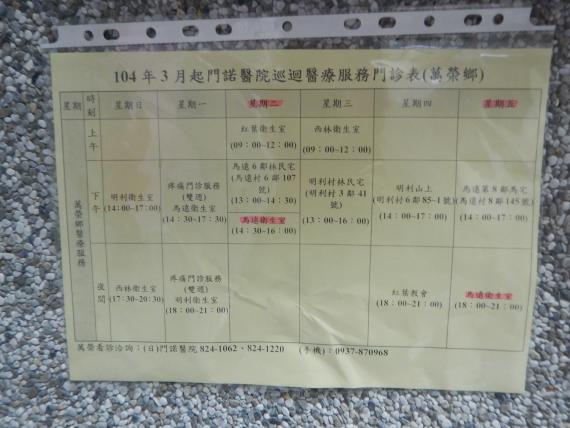 104 年 3 月起門諾醫院巡迴醫療服務門診表(萬榮鄉)
星期 時刻 星期日 星期一 星期二 星期三 星期四 星期五
萬榮鄉醫療服務
上午
紅葉衛生室
(09：00~12：00)
西林衛生室
(09：00~12：00)
下午
明利衛生室
(14：00~17：00)
疼痛門診服務
(雙週)
馬遠衛生室
(14：30~17：30)
馬遠 6 鄰林民宅
(馬遠村 6 鄰 107
號)
(13：00~14：30)
馬遠衛生室
(14：30-16：00)
明利村林民宅
(明利村 3 鄰 41
號)
(13：00~16：00)
明利山上
(明利村 6 鄰 85~1 號)
(14：00~17：00)
馬遠第 8 鄰馬宅
(馬遠村 8 鄰 145 號)
(14：00~17：00)
夜間
西林衛生室
(17：30-20：30)
疼痛門診服務
(雙週)
明利衛生室
(18：00~21：00)
紅葉教會
(18：00~21：00)
馬遠衛生室
(18：00~21：00)
萬榮看診洽詢：(日)門諾醫院 824-1062、824-1220 (手機)：0937-870968